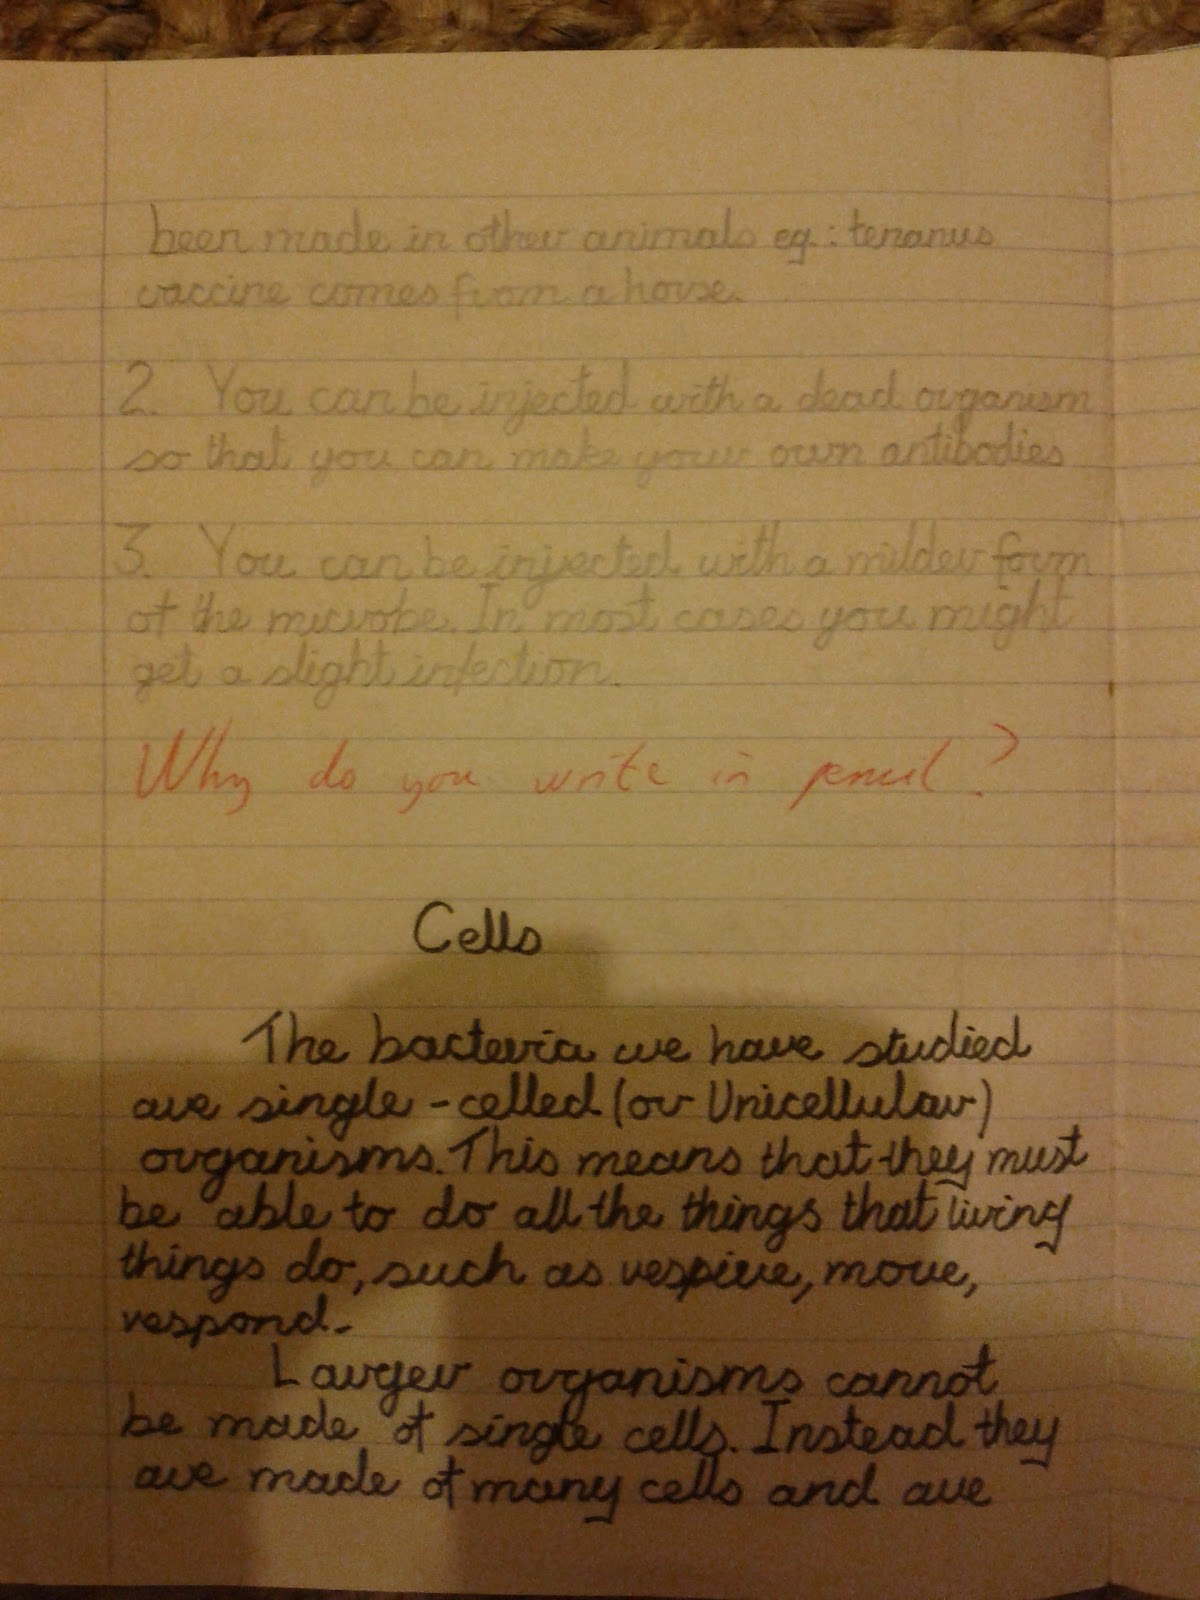 been made in other animals eg.: tenanus
vaccine comes from a horse.
2. You can be injected with a dead organism
so that you can make your own antibodies
3. You can be injected with a milder form
of the microbe. In most cases you might
get a slight infection.
Why do you write in pencil?
Cells
The bacteria we have studied
are single-celled (or Unicellular)
organisms. This means that they must
be able to do all the things that living
things do, such as respire, move,
respond.
Larger organisms cannot
be made of single cells. Instead they
are made of many cells and are